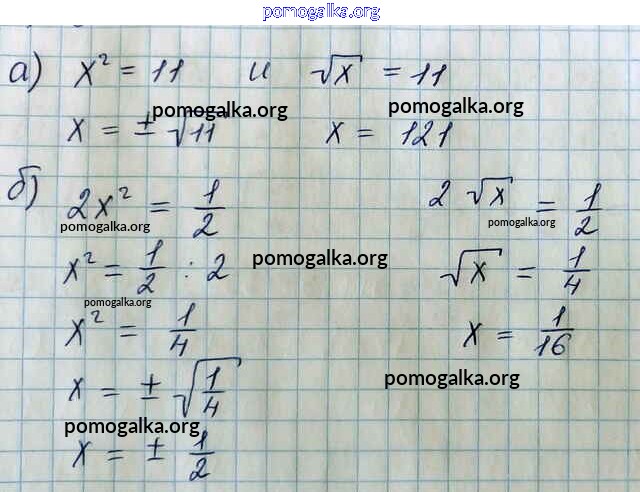 pomogalka.org
а) x² = 11 и √x = 11
pomogalka.org pomogalka.org
x = ± √11 x = 121
б) 2x² = 1/2 2 √x = 1/2
pomogalka.org pomogalka.org
x² = 1/2 : 2 √x = 1/4
pomogalka.org
pomogalka.org
x² = 1/4 x = 1/16
x = ± √1/4
pomogalka.org
pomogalka.org
x = ± 1/2